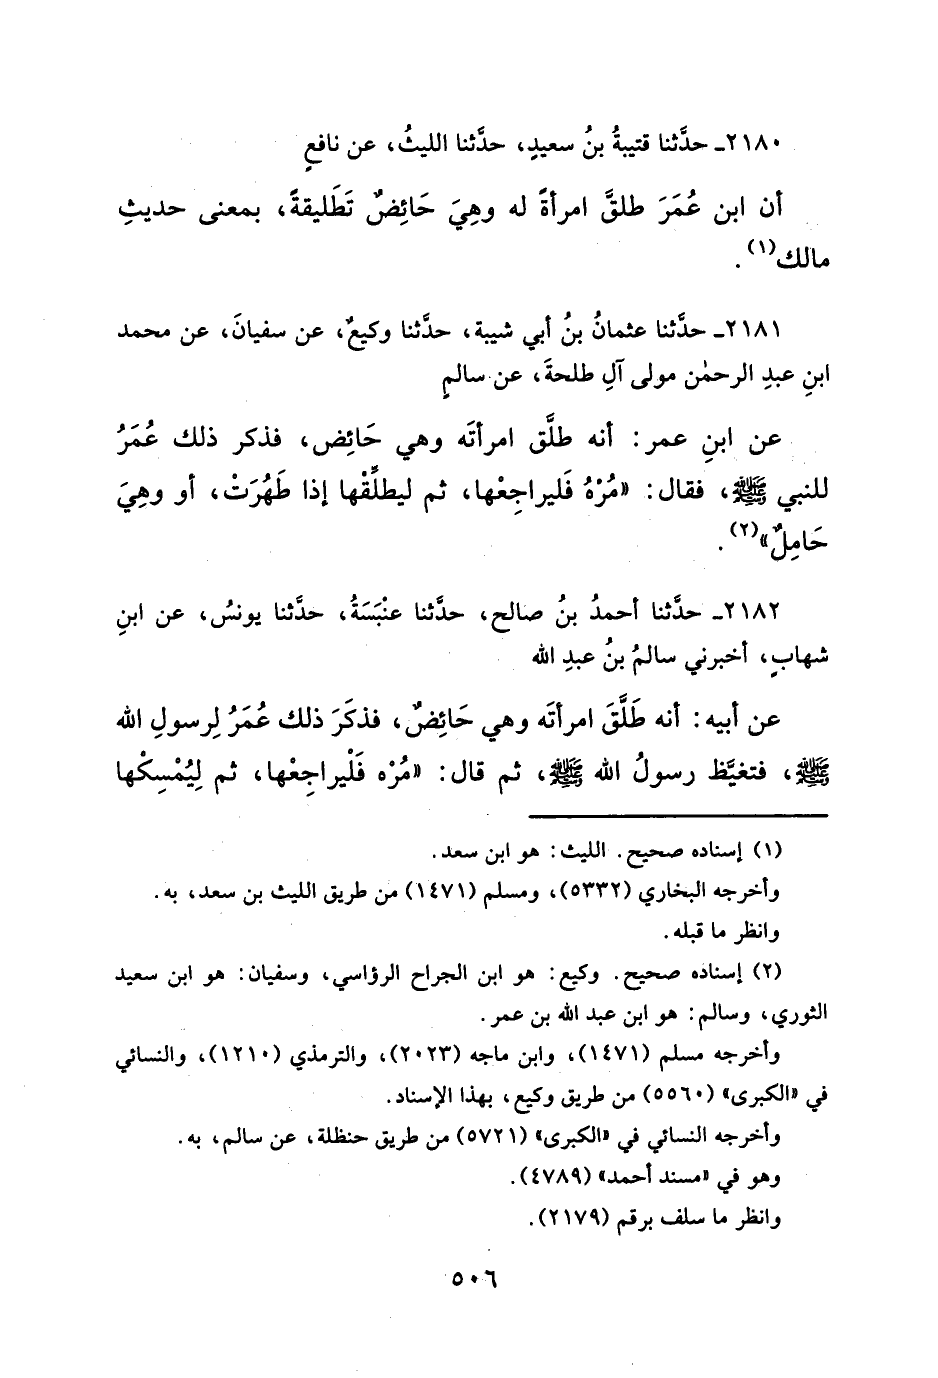 ٢١٨٠ـ حدَّثنا قتيبةُ بنُ سعيدٍ، حدَّثنا الليثُ، عن نافعٍ
أن ابن عُمَرَ طلقَّ امرأةً له وهِيَ حَائِضٌ تَطَليقةً، بمعنى حديثِ
مالك(١).
٢١٨١ـ حدَّثنا عثمانُ بنُ أبي شيبة، حدَّثنا وكيعٌ، عن سفيانَ، عن محمد
ابنِ عبدِ الرحمٰن مولى آلِ طلحةَ، عن سالمٍ
عن ابنِ عمر: أنه طلَّق امرأتَه وهي حَائِض، فذكر ذلك عُمَرُ
للنبي ﷺ، فقال: «مُرْهُ فَليراجِعْها، ثم ليطلِّقْها إذا طَهُرَتْ، أو وهِيَ
حَامِلٌ»(٢).
٢١٨٢ـ حدَّثنا أحمدُ بنُ صالح، حدَّثنا عنْبَسَةُ، حدَّثنا يونسُ، عن ابنِ
شهابٍ، أخبرني سالمُ بنُ عبدِ الله
عن أبيه: أنه طَلَّقَ امرأتَه وهي حَائِضٌ، فذكَرَ ذلك عُمَرُ لِرسولِ الله
ﷺ، فتغيَّظ رسولُ الله ﷺ، ثم قال: «مُرْه فَلْيراجِعْها، ثم لِيُمْسِكْها
(١) إسناده صحيح. الليث: هو ابن سعد.
وأخرجه البخاري (٥٣٣٢)، ومسلم (١٤٧١) من طريق الليث بن سعد، به.
وانظر ما قبله.
(٢) إسناده صحيح. وكيع: هو ابن الجراح الرؤاسي، وسفيان: هو ابن سعيد
الثوري، وسالم: هو ابن عبد الله بن عمر.
وأخرجه مسلم (١٤٧١)، وابن ماجه (٢٠٢٣)، والترمذي (١٢١٠)، والنسائي
في «الكبرى» (٥٥٦٠) من طريق وكيع، بهذا الإسناد.
وأخرجه النسائي في «الكبرى» (٥٧٢١) من طريق حنظلة، عن سالم، به.
وهو في «مسند أحمد» (٤٧٨٩).
وانظر ما سلف برقم (٢١٧٩).
٥٠٦